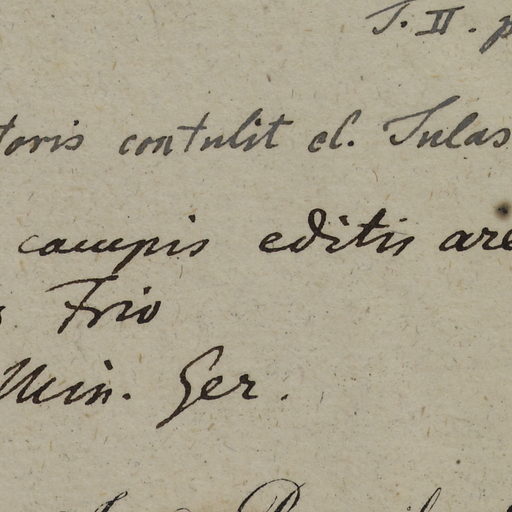 T. II. p
toris contulit cl. Tulas
campis editis are
Frio
Min. Ger.